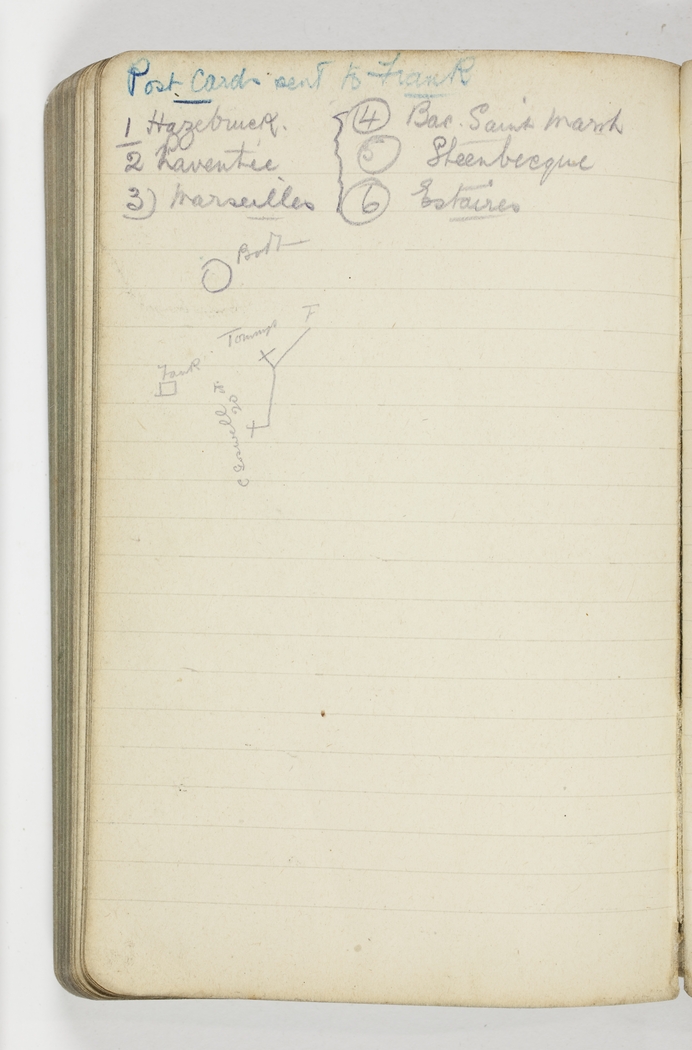 Post Cards sent to Frank
1 Hazebruck.
2 Laventie
3) Marseilles
4 Bac. Saint Marsh
5 Steenbecque
6 Estaires
Bott
F
Tommys
Tank